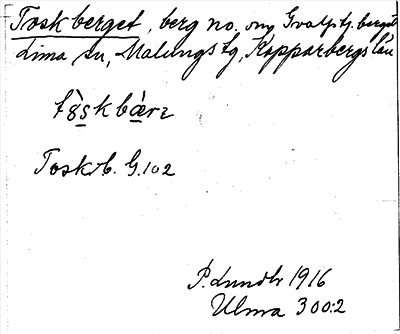 Toskberget, berg no. om Gvalstj.berget
Lima sn, Malungs tg, Kopparbergs län
tɞ̀skbær̀ɜ
Toskb. G.102
P. Lundbr 1916
Ulma 300:2